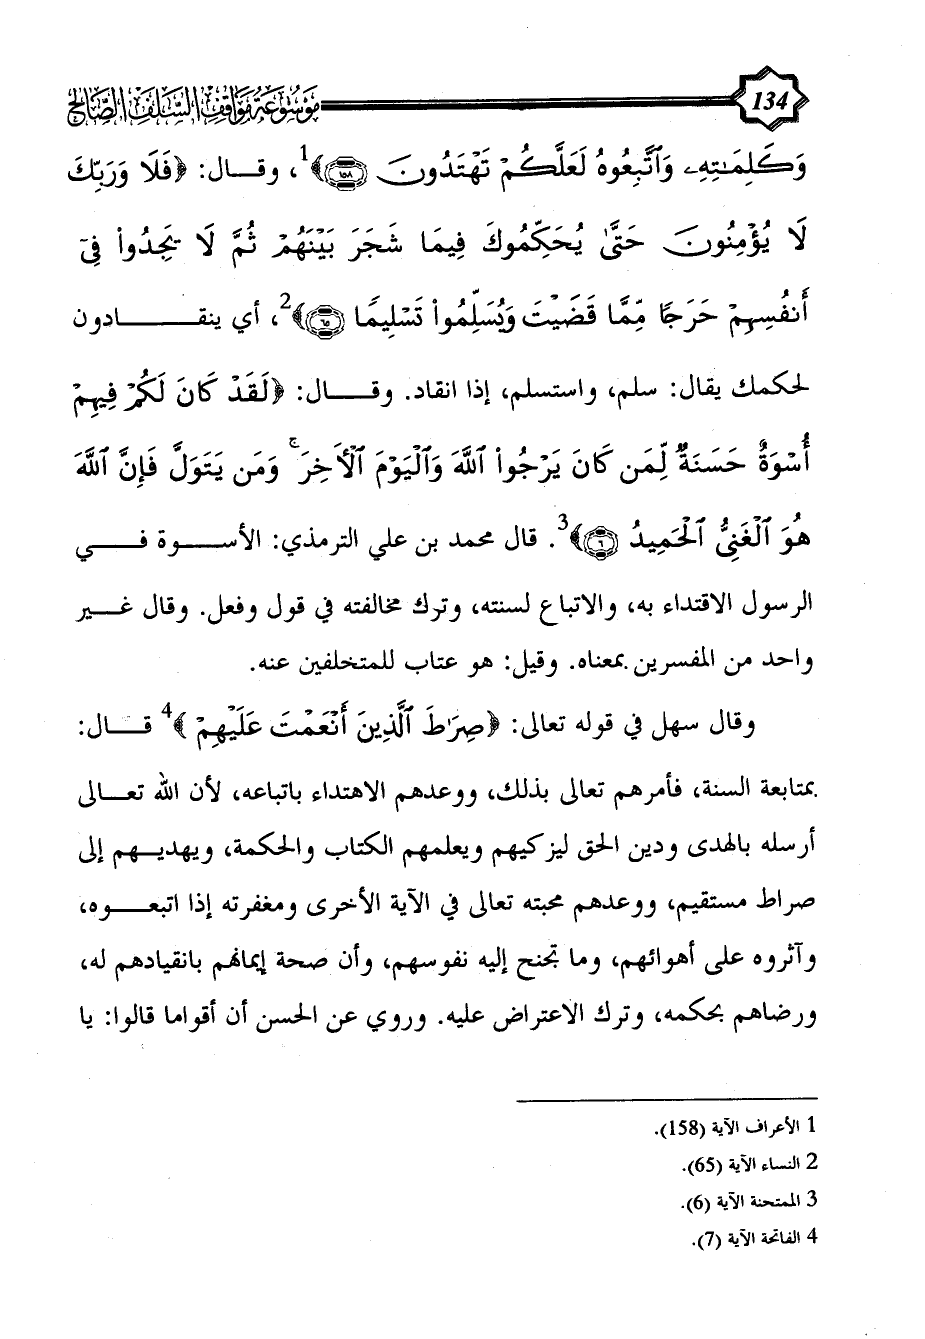 134
موسوعة مواقف السلف الصالح
وَكَلِمَـٰتِهِۦ وَٱتَّبِعُوهُ لَعَلَّكُمْ تَهْتَدُونَ ١٥٨﴾1، وقال: ﴿فَلَا وَرَبِّكَ
لَا يُؤْمِنُونَ حَتَّىٰ يُحَكِّمُوكَ فِيمَا شَجَرَ بَيْنَهُمْ ثُمَّ لَا يَجِدُوا۟ فِىٓ
أَنفُسِهِمْ حَرَجًا مِّمَّا قَضَيْتَ وَيُسَلِّمُوا۟ تَسْلِيمًا ٦٥﴾2، أي ينقادون
لحكمك يقال: سلم، واستسلم، إذا انقاد. وقال: ﴿لَقَدْ كَانَ لَكُمْ فِيهِمْ
أُسْوَةٌ حَسَنَةٌ لِّمَن كَانَ يَرْجُوا۟ ٱللَّهَ وَٱلْيَوْمَ ٱلْـَٔاخِرَ ۚ وَمَن يَتَوَلَّ فَإِنَّ ٱللَّهَ
هُوَ ٱلْغَنِىُّ ٱلْحَمِيدُ ٦﴾3. قال محمد بن علي الترمذي: الأسوة في
الرسول الاقتداء به، والاتباع لسنته، وترك مخالفته في قول وفعل. وقال غير
واحد من المفسرين بمعناه. وقيل: هو عتاب للمتخلفين عنه.
وقال سهل في قوله تعالى: ﴿صِرَٰطَ ٱلَّذِينَ أَنْعَمْتَ عَلَيْهِمْ﴾4 قال:
بمتابعة السنة، فأمرهم تعالى بذلك، ووعدهم الاهتداء باتباعه، لأن الله تعالى
أرسله بالهدى ودين الحق ليزكيهم ويعلمهم الكتاب والحكمة، ويهديهم إلى
صراط مستقيم، ووعدهم محبته تعالى في الآية الأخرى ومغفرته إذا اتبعوه،
وآثروه على أهوائهم، وما تجنح إليه نفوسهم، وأن صحة إيمانهم بانقيادهم له،
ورضاهم بحكمه، وترك الاعتراض عليه. وروي عن الحسن أن أقواما قالوا: يا
1 الأعراف الآية (158).
2 النساء الآية (65).
3 الممتحنة الآية (6).
4 الفاتحة الآية (7).